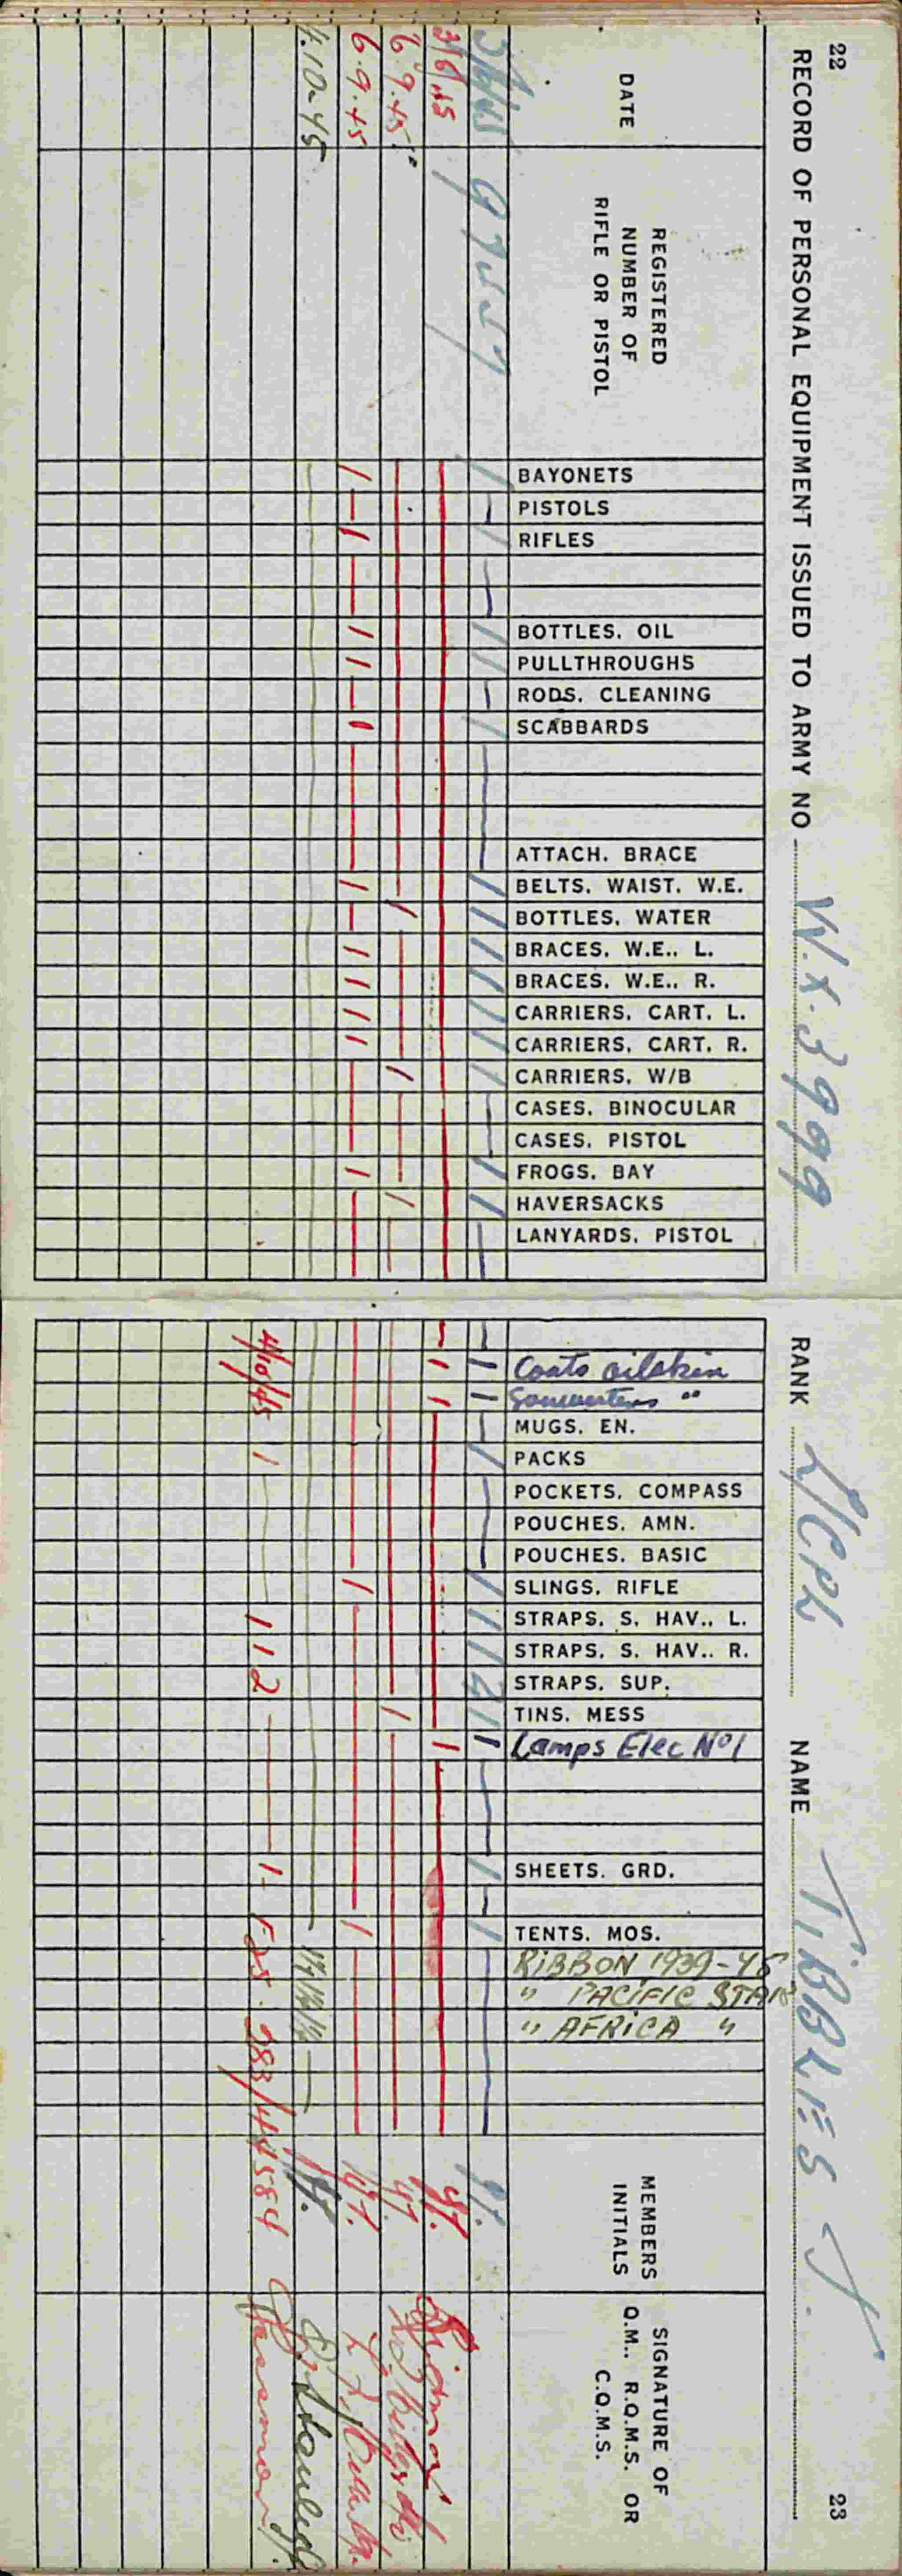 22
RECORD OF PERSONAL EQUIPMENT ISSUED TO ARMY NO W.X. 3999
RANK L/CPL NAME TIBBLES J.
23
DATE
REGISTERED
NUMBER OF
RIFLE OR PISTOL
BAYONETS
PISTOLS
RIFLES
BOTTLES, OIL
PULLTHROUGHS
RODS, CLEANING
SCABBARDS
ATTACH. BRACE
BELTS, WAIST, W.E.
BOTTLES, WATER
BRACES, W.E., L.
BRACES, W.E., R.
CARRIERS, CART. L.
CARRIERS, CART. R.
CARRIERS, W/B
CASES, BINOCULAR
CASES, PISTOL
FROGS, BAY
HAVERSACKS
LANYARDS, PISTOL
Coats oilskin
"
MUGS, EN.
PACKS
POCKETS, COMPASS
POUCHES, AMN.
POUCHES, BASIC
SLINGS, RIFLE
STRAPS, S. HAV., L.
STRAPS, S. HAV., R.
STRAPS, SUP.
TINS, MESS
Lamps Elec No1
SHEETS, GRD.
TENTS, MOS.
RIBBON 1939-45
" PACIFIC STAR
" AFRICA "
MEMBERS
INITIALS
SIGNATURE OF
Q.M., R.Q.M.S. OR
C.Q.M.S.
3/6/45
1 - 1 - 1 1 - 1 - 1 1 1 1 1 1 1 - 1 1 - 1 1 - 1 - 1 1 1 2 1 1 - 1 - 1 -
3/6/45 1 1 1
6.9.45 1 1 1 1
6.9.45 1 - 1 - 1 1 - 1 - 1 - 1 1 1 1 - 1 - 1 - 1
4.10-45 1 1 1
4/10/45 1 1 1 2 1